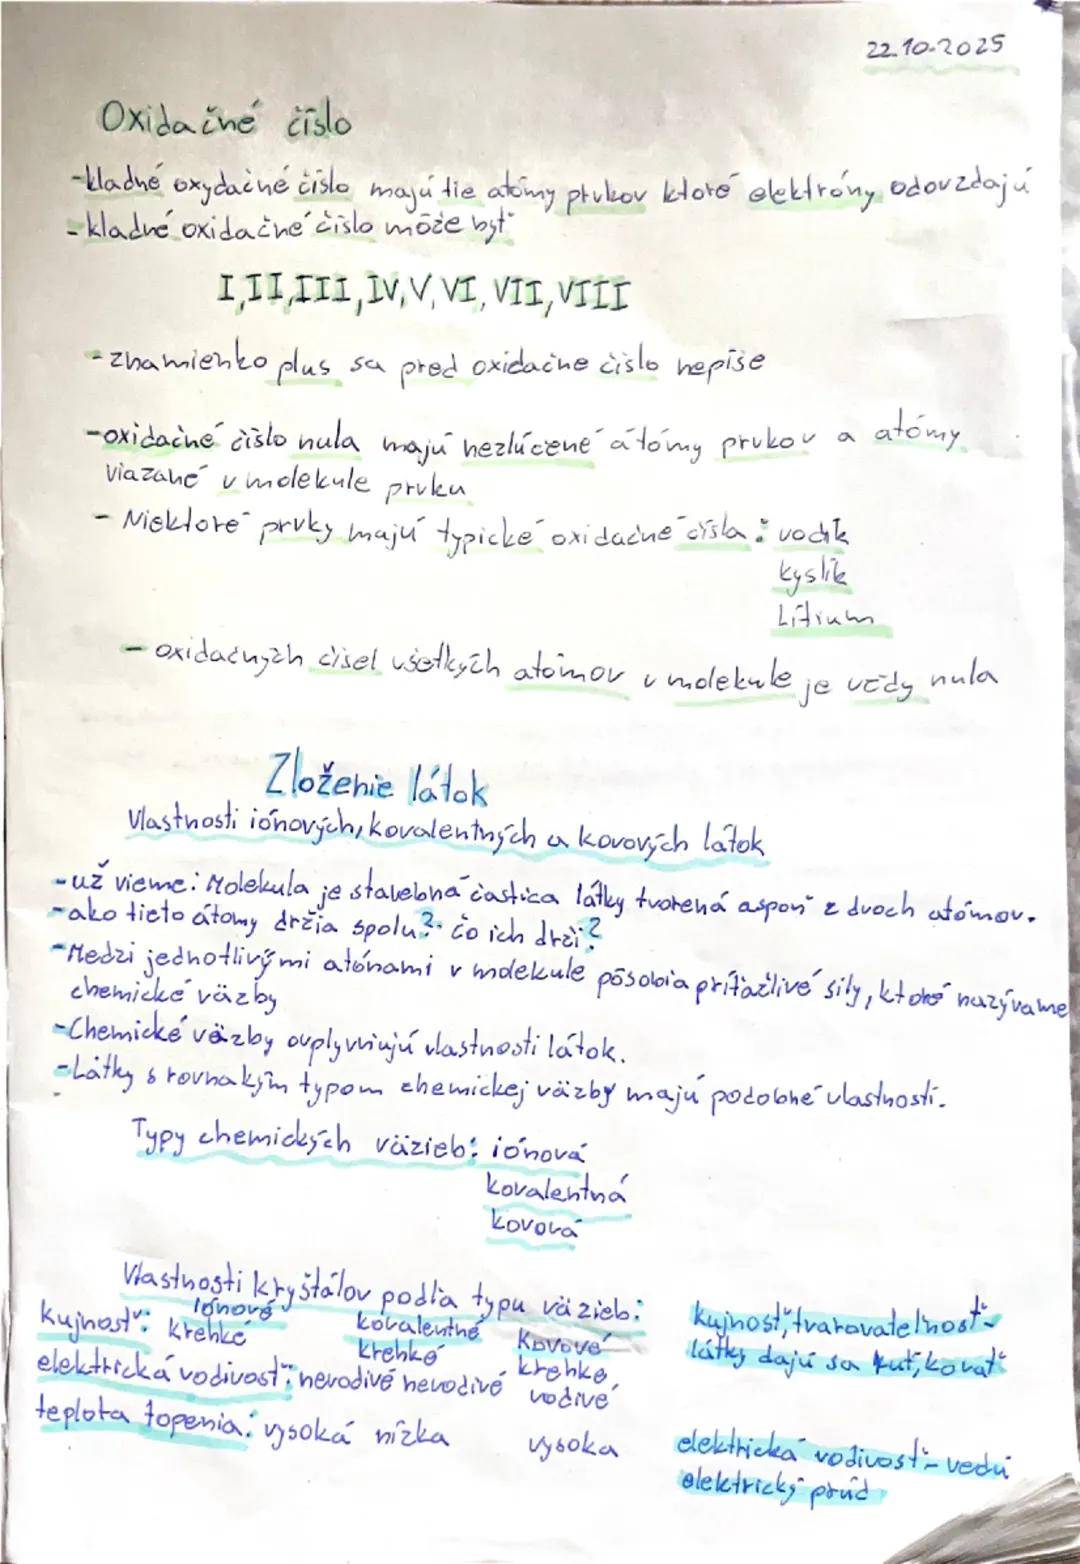 22.10.2025
Oxidačné číslo
-kladné oxydačné číslo majú tie atómy prvkov ktoré elektróny odovzdajú
-kladné oxidačné číslo môže byť
I,II,III,IV,V,VI,VII,VIII
-znamienko plus sa pred oxidačne číslo nepíše
-oxidačné číslo nula majú nezlúčené átómy prvkov a atómy
viazané v molekule prvku
- Niektoré prvky majú typické oxidačné čísla: vodík
kyslík
Lítium
- oxidačných čísel všetkých atómov v molekule je vždy nula
Zloženie látok
Vlastnosti iónových, kovalentných a kovových látok
-už vieme: Molekula je stavebná častica látky tvorená aspoň z dvoch atómov.
-ako tieto átomy držia spolu? čo ich drží?
-Medzi jednotlivými atónami v molekule pôsobia príťažlivé sily, ktoré nazývame
chemické väzby
-Chemické väzby ovplyvniujú vlastnosti látok.
-Látky s rovnakým typom chemickej väzby majú podobné vlastnosti.
Typy chemických väzieb: iónová
kovalentná
kovová
Vlastnosti kryštálov podľa typu väzieb:
Iónové kovalentné Kovové
kujnosť: krehké krehké krehke
elektrická vodivosť: nevodivé nevodivé vodivé
teplota topenia: vysoká nízka vysoka
kujnosť, tvarovateľnosť-
látky dajú sa kuť, kovať
elektrická vodivosť- vedú
elektrický prúd